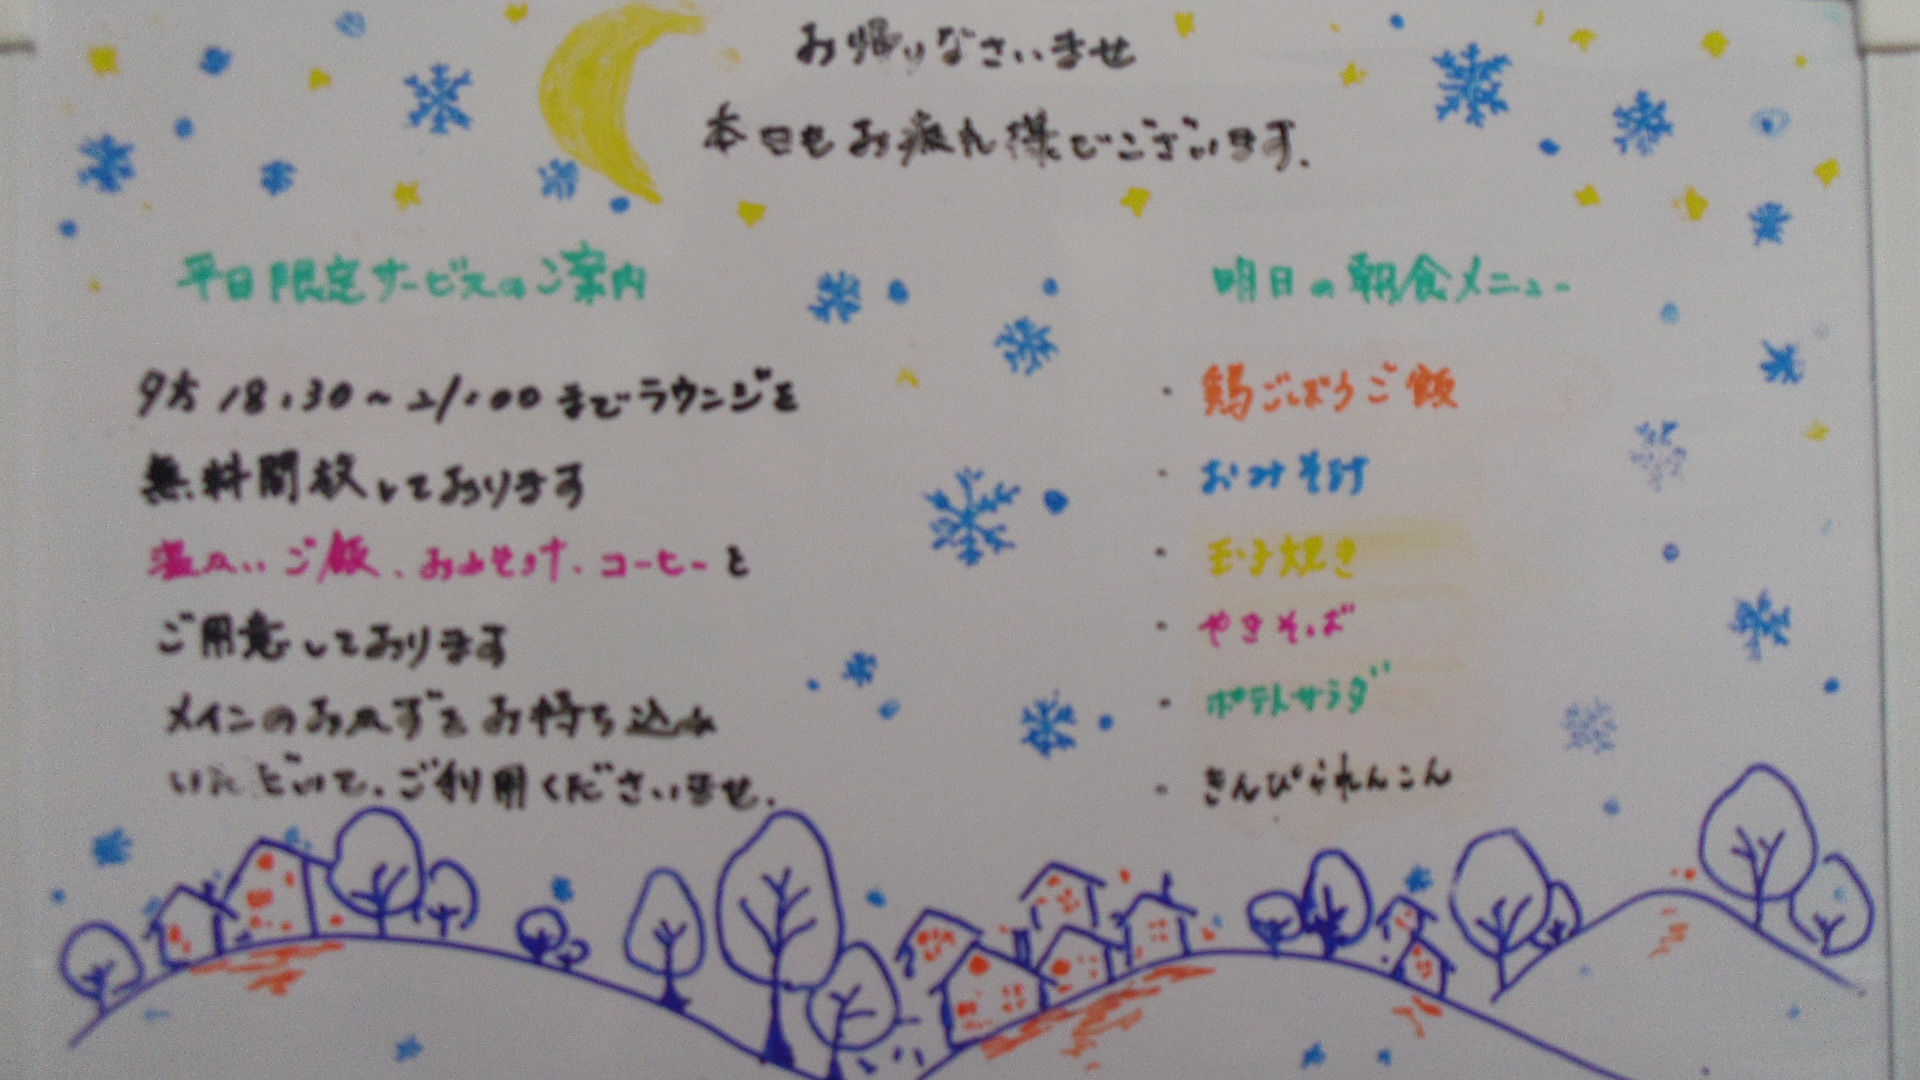 お帰りなさいませ
本日もお疲れ様でございます.
平日限定サービスのご案内
夕方 18:30~21:00 までラウンジを
無料開放しております
温かいご飯、おみそ汁、コーヒーと
ご用意しております
メインのおかずをお持ち込み
いただいて、ご利用くださいませ.
明日の朝食メニュー
・鶏ごぼうご飯
・おみそ汁
・玉子焼き
・やきそば
・ポテトサラダ
・きんぴられんこん